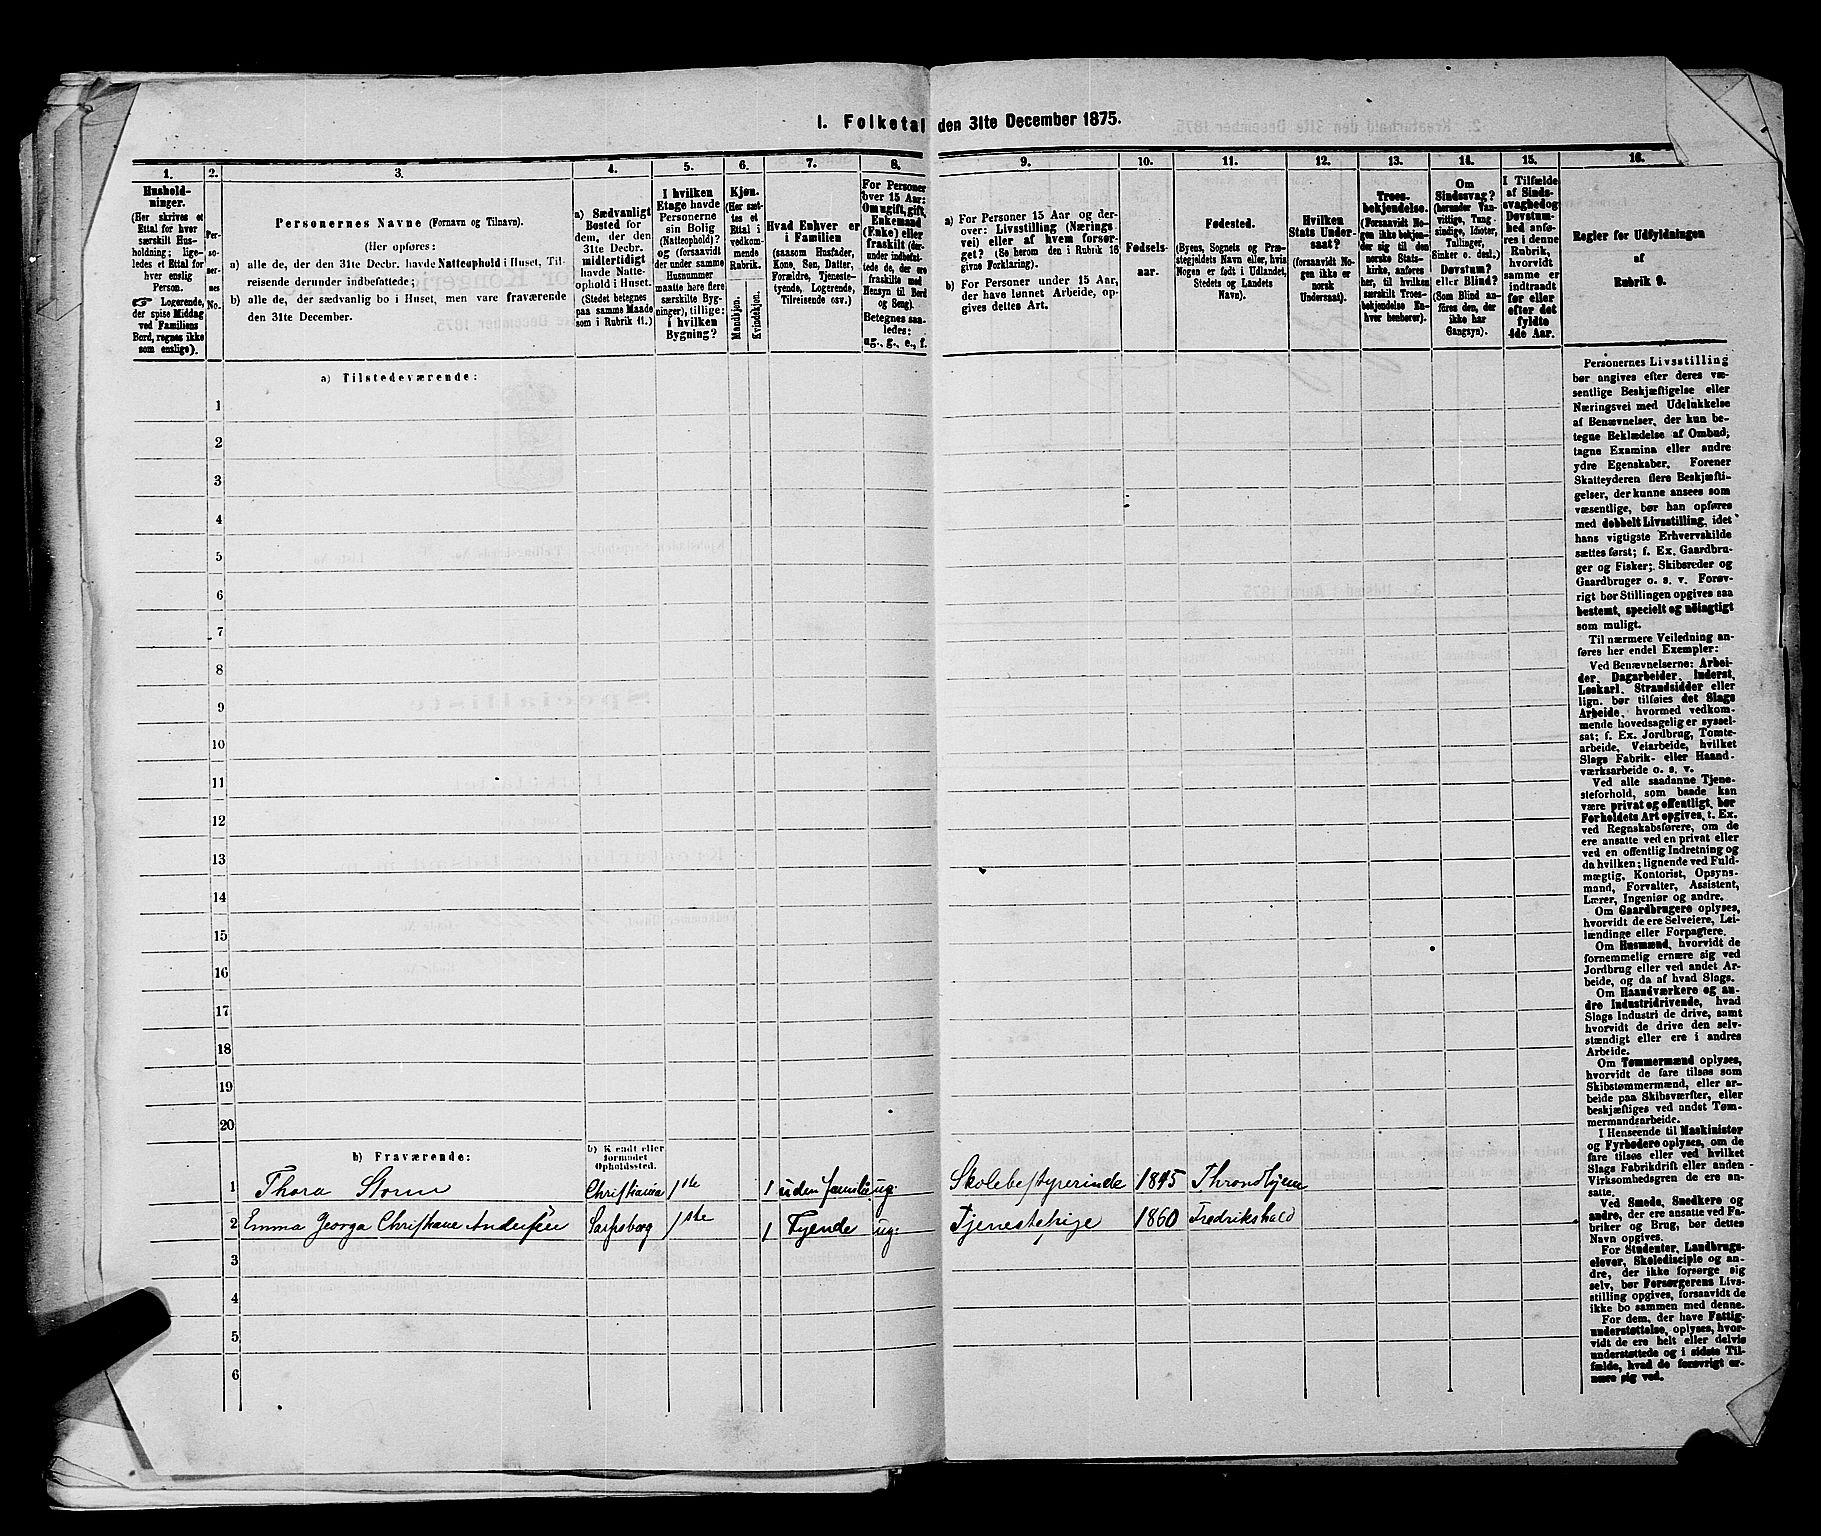 1. Folketal den 31te December 1875.
1. 2. 3. 4. 5. 6. 7. 8. 9. 10. 11. 12. 13. 14. 15. 16.
Hushold-
ninger.
(Her skrives et
Ettal for hver
særskilt Hus-
holdning; lige-
ledes et Ettal for
hver enslig
Person.
☞ Logerende,
der spise Middag
ved Familiens
Bord, regnes ikke
som enslige).
Per-
so-
ner-
nes
No.
Personernes Navne (Fornavn og Tilnavn).
(Her opføres:
a) alle de, der den 31te Decbr. havde Natteophold i Huset, Til-
reisende derunder indbefattede;
b) alle de, der sædvanlig bo i Huset, men vare fraværende
den 31te December.
a) Sædvanligt
Bosted for
dem, der den
31te Decbr.
midlertidigt
havde Natte-
ophold i Huset.
(Stedet betegnes
paa samme Maade
som i Rubrik 11.)
I hvilken
Etage havde
Personerne
sin Bolig
(Natteophold)?
og (forsaavidt
der under samme
Husnummer
maatte høre flere
særskilte Byg-
ninger), tillige:
i hvilken
Bygning?
Kjøn.
(Her sæt-
tes et
Ettal i
vedkom-
mende
Rubrik.
Mandkjøn.
Kvindekjøn.
Hvad Enhver er
i Familien
(saasom Husfader,
Kone, Søn, Datter,
Forældre, Tjeneste-
tyende, Logerende,
Tilreisende osv.)
For Personer
over 15 Aar:
Om ugift, gift,
Enkemand
(Enke) eller
fraskilt (der-
under indbefat-
tede de, der ere
fraskilte med
Hensyn til Bord
og Seng).
Betegnes saa-
ledes:
ug., g., e., f.
a) For Personer 15 Aar og der-
over: Livsstilling (Nærings-
vei) eller af hvem forsør-
get? (Se herom den i Rubrik 16
givne Forklaring).
b) For Personer under 15 Aar,
der have lønnet Arbeide, op-
gives dettes Art.
Fødsels-
aar.
Fødested.
(Byens, Sognets og Præ-
stegjeldets Navn eller, hvis
Nogen er født i Udlandet,
Stedets og Landets
Navn).
Hvilken
Stats Under-
saat?
(forsaavidt No-
gen ikke er
norsk
Undersaat).
Troes-
bekjendelse.
(Forsaavidt No-
gen ikke bekjen-
der sig til den
norske Stats-
kirke, anføres
her, til hvilken
særskilt Troes-
bekjendelse En-
hver henhører).
Om
Sindssvag?
(herunder Van-
vittige, Tung-
sindige, Idioter,
Tullinger,
Sinker o. desl.)
Døvstum?
eller Blind?
(Som Blind an-
føres den, der
ikke har
Gangsyn).
I Tilfælde
af Sinds-
svaghed og
Døvstum-
hed anfø-
res i denne
Rubrik,
hvorvidt
samme er
indtraadt
før eller
efter det
fyldte
4de Aar.
Regler for Udfyldningen
af
Rubrik 9.
a) Tilstedeværende:
1
2
3
4
5
6
7
8
9
10
11
12
13
14
15
16
17
18
19
20
b) Fraværende:
b) Kjendt eller
formodet
Opholdssted.
1 Thora Storm Christiania 1ste 1 uden familie ug. Skolebestyrerinde 1845 Throndhjem
2 Emma Georga Christiane Andersen Sarpsborg 1ste 1 Tyende ug. Tjenestepige 1860 Fredrikshald
3
4
5
6
Personernes Livsstilling
bør angives efter deres væ-
sentlige Beskjæftigelse eller
Næringsvei med Udelukkelse
af Benævnelser, der kun be-
tegne Beklædelse af Ombud,
tagne Examina eller andre
ydre Egenskaber. Forener
Skatteyderen flere Beskjæfti-
gelser, der kunne ansees som
væsentlige, bør han opføres
med dobbelt Livsstilling, idet
hans vigtigste Erhvervskilde
sættes først; f. Ex. Gaardbru-
ger og Fisker; Skibsreder og
Gaardbruger o. s. v. Forøv-
rigt bør Stillingen opgives saa
bestemt, specielt og nöiagtigt
som muligt.
Til nærmere Veiledning an-
føres her endel Exempler:
Ved Benævnelserne: Arbei-
der, Dagarbeider, Inderst,
Løskarl, Strandsidder eller
lign. bør tilføies det Slags
Arbeide, hvormed vedkom-
mende hovedsagelig er syssel-
sat; f. Ex. Jordbrug, Tomte-
arbeide, Veiarbeide, hvilket
Slags Fabrik- eller Haand-
værksarbeide o. s. v.
Ved alle saadanne Tjene-
steforhold, som baade kan
være privat og offentligt, bør
Forholdets Art opgives, t. Ex.
ved Regnskabsførere, om de
ere ansatte ved en privat eller
ved en offentlig Indretning og
da hvilken; lignende ved Fuld-
mægtig, Kontorist, Opsyns-
mand, Forvalter, Assistent,
Lærer, Ingeniør og andre.
Om Gaardbrugere oplyses,
hvorvidt de ere Selveiere, Lei-
lændinge eller Forpagtere.
Om Husmænd, hvorvidt de
fornemmelig ernære sig ved
Jordbrug eller ved andet Ar-
beide, og da af hvad Slags.
Om Haandværkere og an-
dre Industridrivende, hvad
Slags Industri de drive, samt
hvorvidt de drive den selv-
stændigt eller ere i andres
Arbeide.
Om Tømmermænd oplyses,
hvorvidt de fare tilsøs som
Skibstømmermænd, eller ar-
beide paa Skibsværfter, eller
beskjæftiges ved andet Tøm-
mermandsarbeide.
I Henseende til Maskinister
og Fyrbødere oplyses, om de
fare tilsøs eller ved hvilket
Slags Fabrikdrift eller anden
Virksomhedsgren de ere an-
satte.
Ved Smede, Snedkere og
andre, der ere ansatte ved Fa-
briker og Brug, bør dettes
Navn opgives.
For Studenter, Landbrugs-
elever, Skoledisciple og an-
dre, der ikke forsørge sig
selv, bør Forsørgerens Livs-
stilling opgives, forsaavidt de
ikke bo sammen med denne.
For dem, der have Fattig-
understøttelse, oplyses, hvor-
vidt de ere helt eller delvis
understøttede og i sidste Til-
fælde, hvad de forøvrigt er-
nære sig ved.